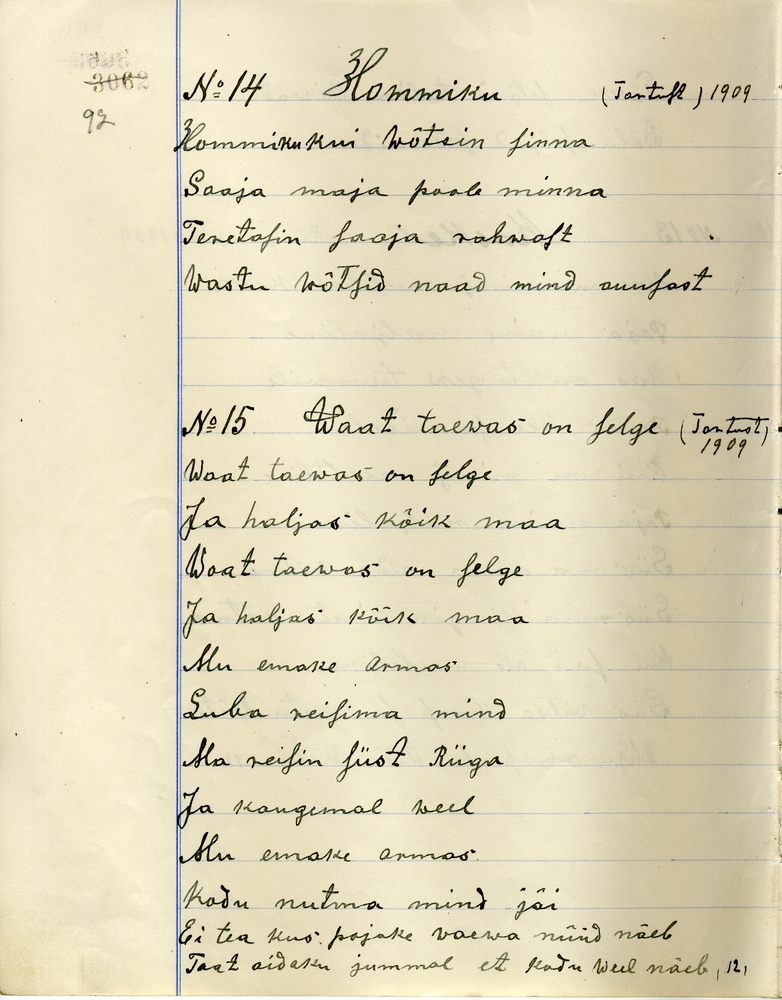 3062
92
№ 14 Hommiku (Tartust) 1909
Hommikukui Wõtsin sinna
Saaja maja poole minna
Teretasin saaja rahwast
Wastu wõtsid naad mind auusast
№ 15 Waat taewas on selge (Tartust)
1909
Waat taewas on selge
Ja haljas kõik maa
Waat taewas on selge
Ja haljas kõik maa
Mu emake armas
Luba reisima mind
Ma reisin siist Riiga
Ja kaugemal weel
Mu emake armas
Kodu nutma mind jäi
Ei tea kus pojake vaewa nüid näeb
Taat aidaku jummal et kodu Weel näeb, 12,